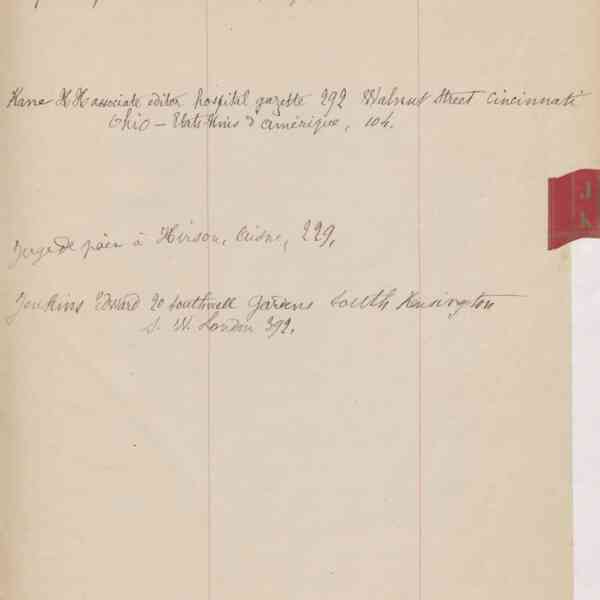 Kane H H associate editor hospital gazette 292 Walnut Street Cincinnati
Ohio – Etats Unis d'amérique, 104.
J
K
Juge de paix à Hirson, Aisne, 229,
Jenkins Edward 20 Southwell Gardens South Kensington
S. W. London 392.